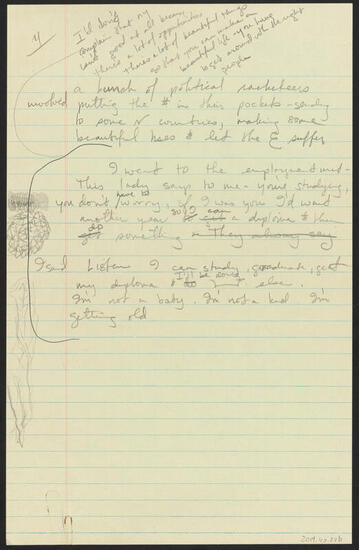 4
I'd don't
complain that my
land good at all because
there's a lot of opportunities
& there's a lot of beautiful things
so that you can make a
beautiful life - you have
to get around with the right
people
a bunch of political racketeers
involved putting the $ in their pockets - sending
to some countries, making some
beautiful uses & let the E suffer
I went to the employment
This lady says to me - you're studying,
you don't have to worry, if I was you I'd wait
another year so I can a diploma & then
do something They
I said Listen I can study, graduate, get
my diploma & I'll be else.
I'm not a baby. I'm not a kid I'm
getting old